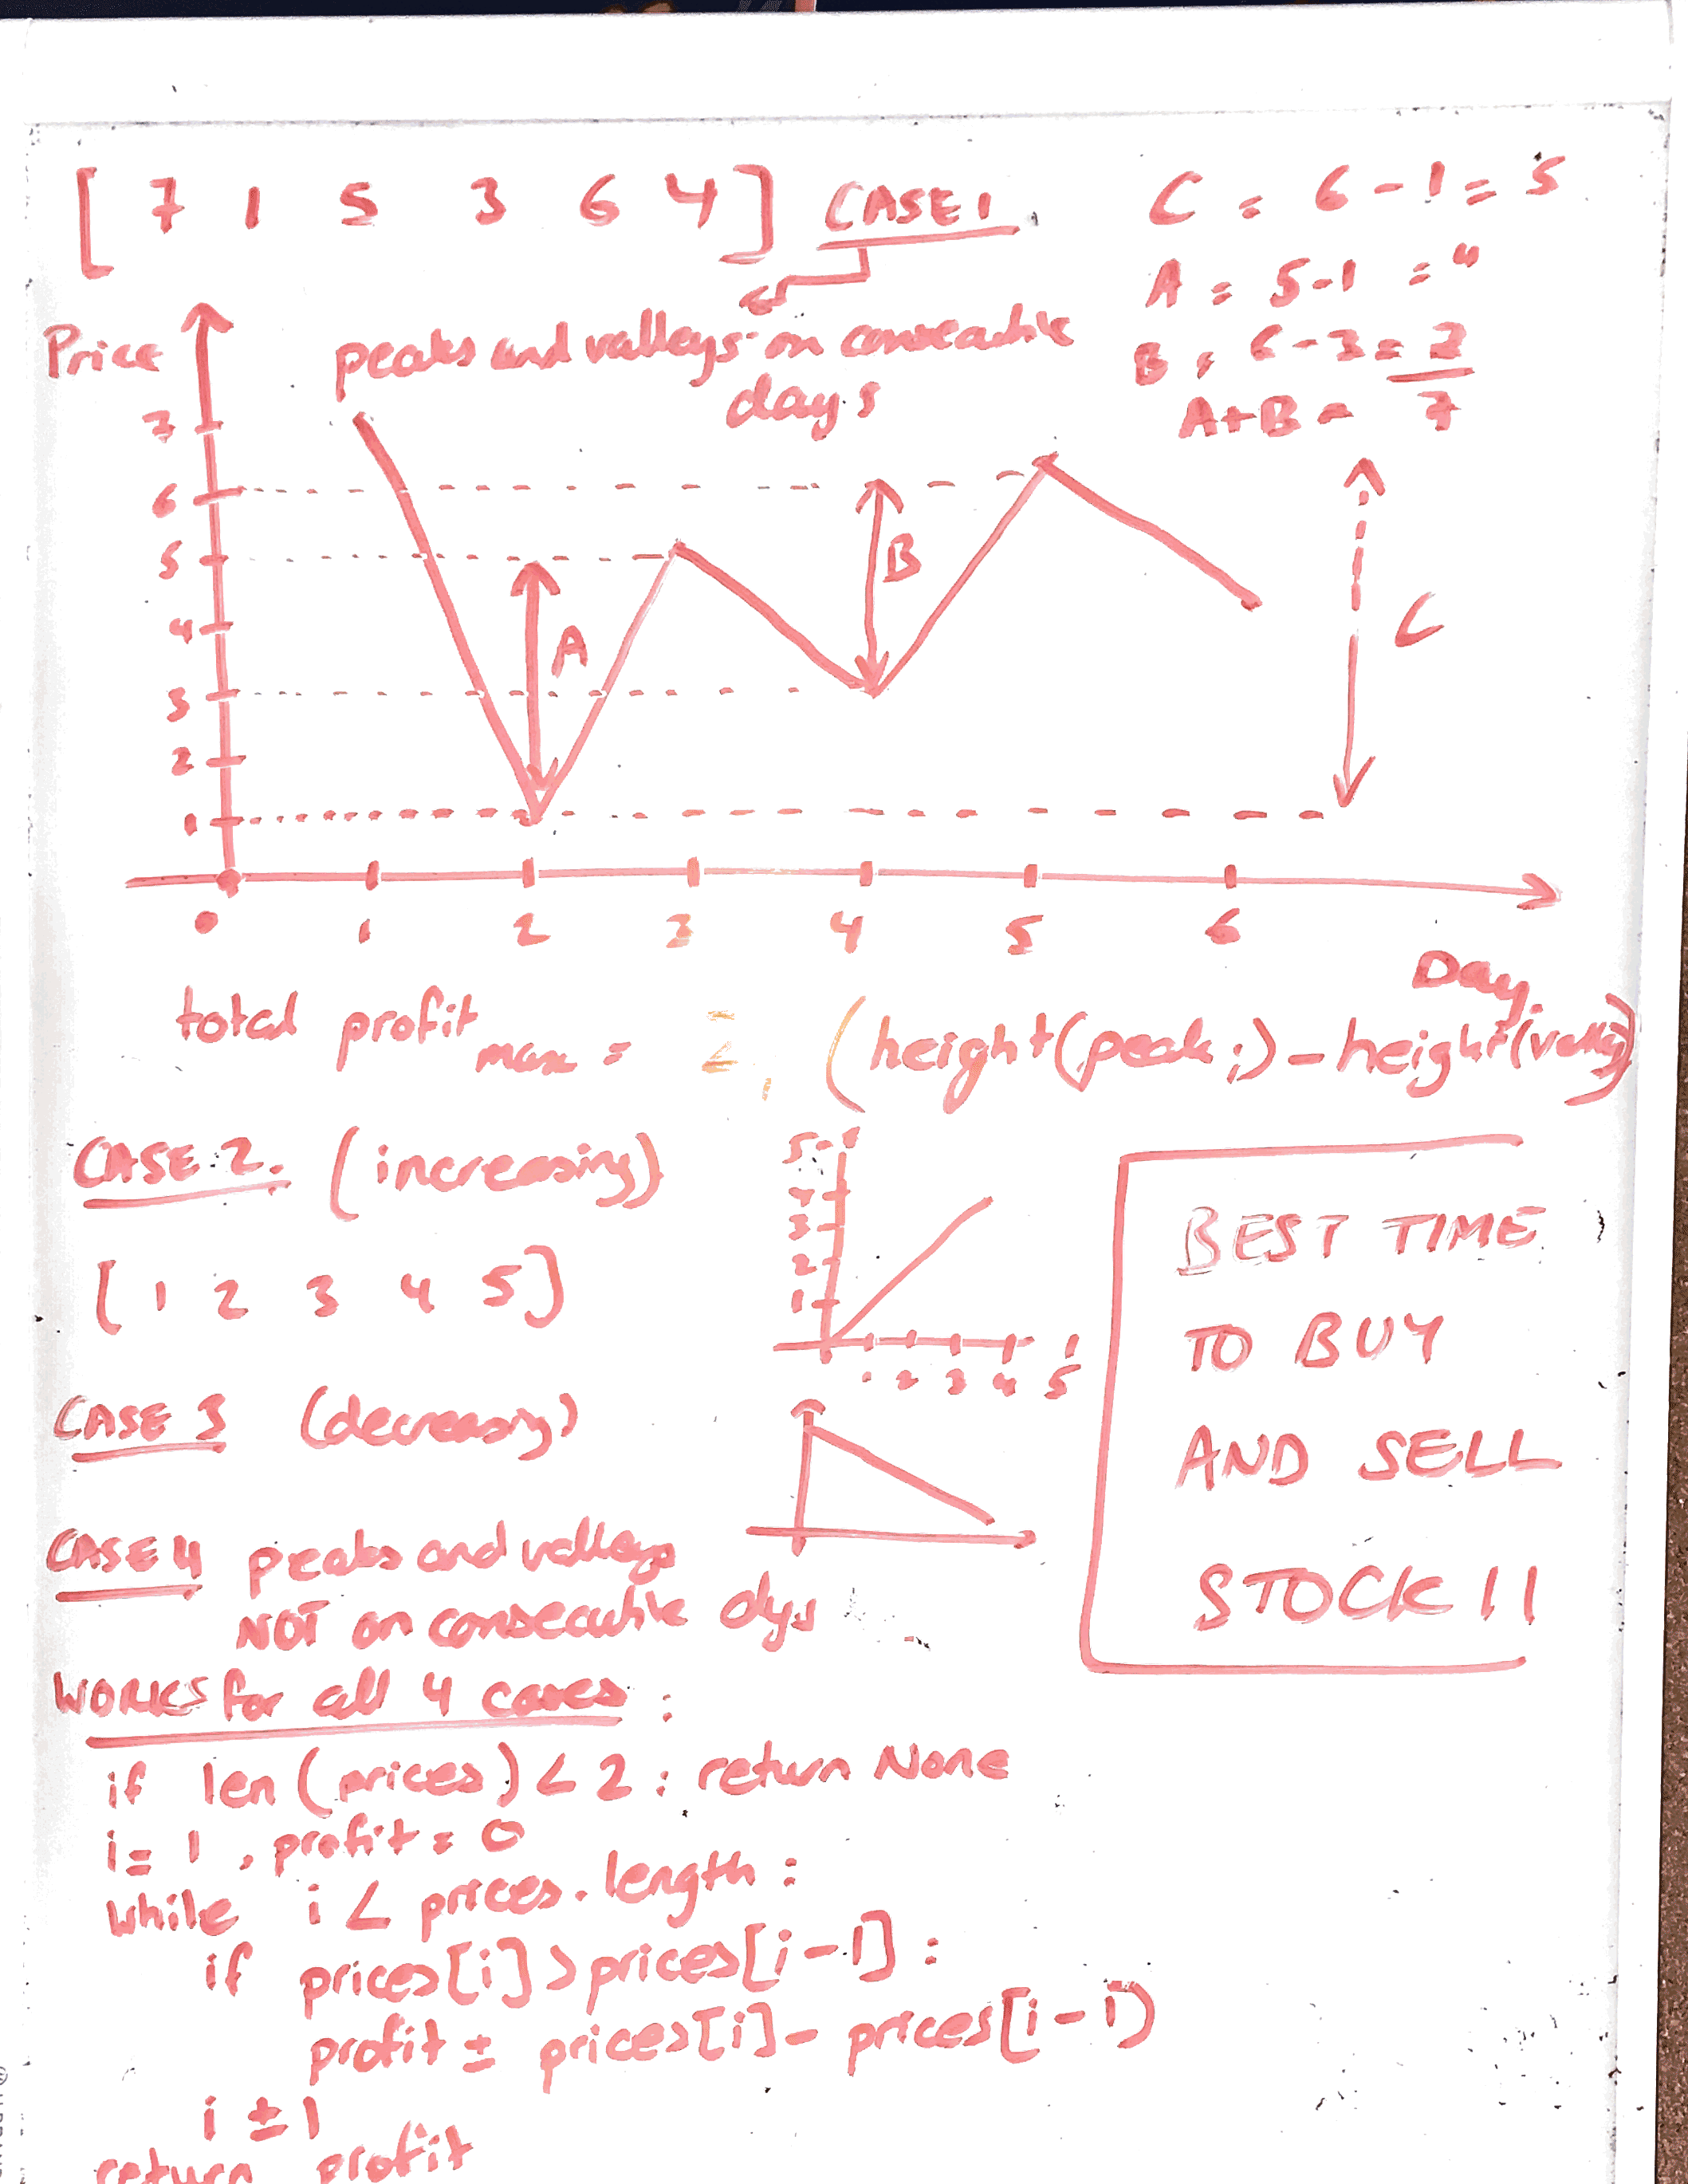 [ 7 1 5 3 6 4 ] CASE 1
C = 6 - 1 = 5
A = 5-1 = 4
B = 6 - 3 = 3
A+B = 7
Price
peaks and valleys on consecutive
days
7
6
5
4
3
2
1
A
B
C
0 1 2 3 4 5 6
Day.
total profit max = Σ i (height(peak i) - height(valley
CASE 2. (increasing)
[ 1 2 3 4 5 ]
5
4
3
2
1
1 2 3 4 5
CASE 3 (decreasing)
CASE 4 peaks and valleys
NOT on consecutive dys
BEST TIME
TO BUY
AND SELL
STOCK II
WORKS for all 4 cases :
if len (prices) < 2 : return None
i = 1 , profit = 0
while i < prices.length :
if prices[i] > prices[i-1] :
profit ± prices[i] - prices[i-1)
i ± 1
return profit